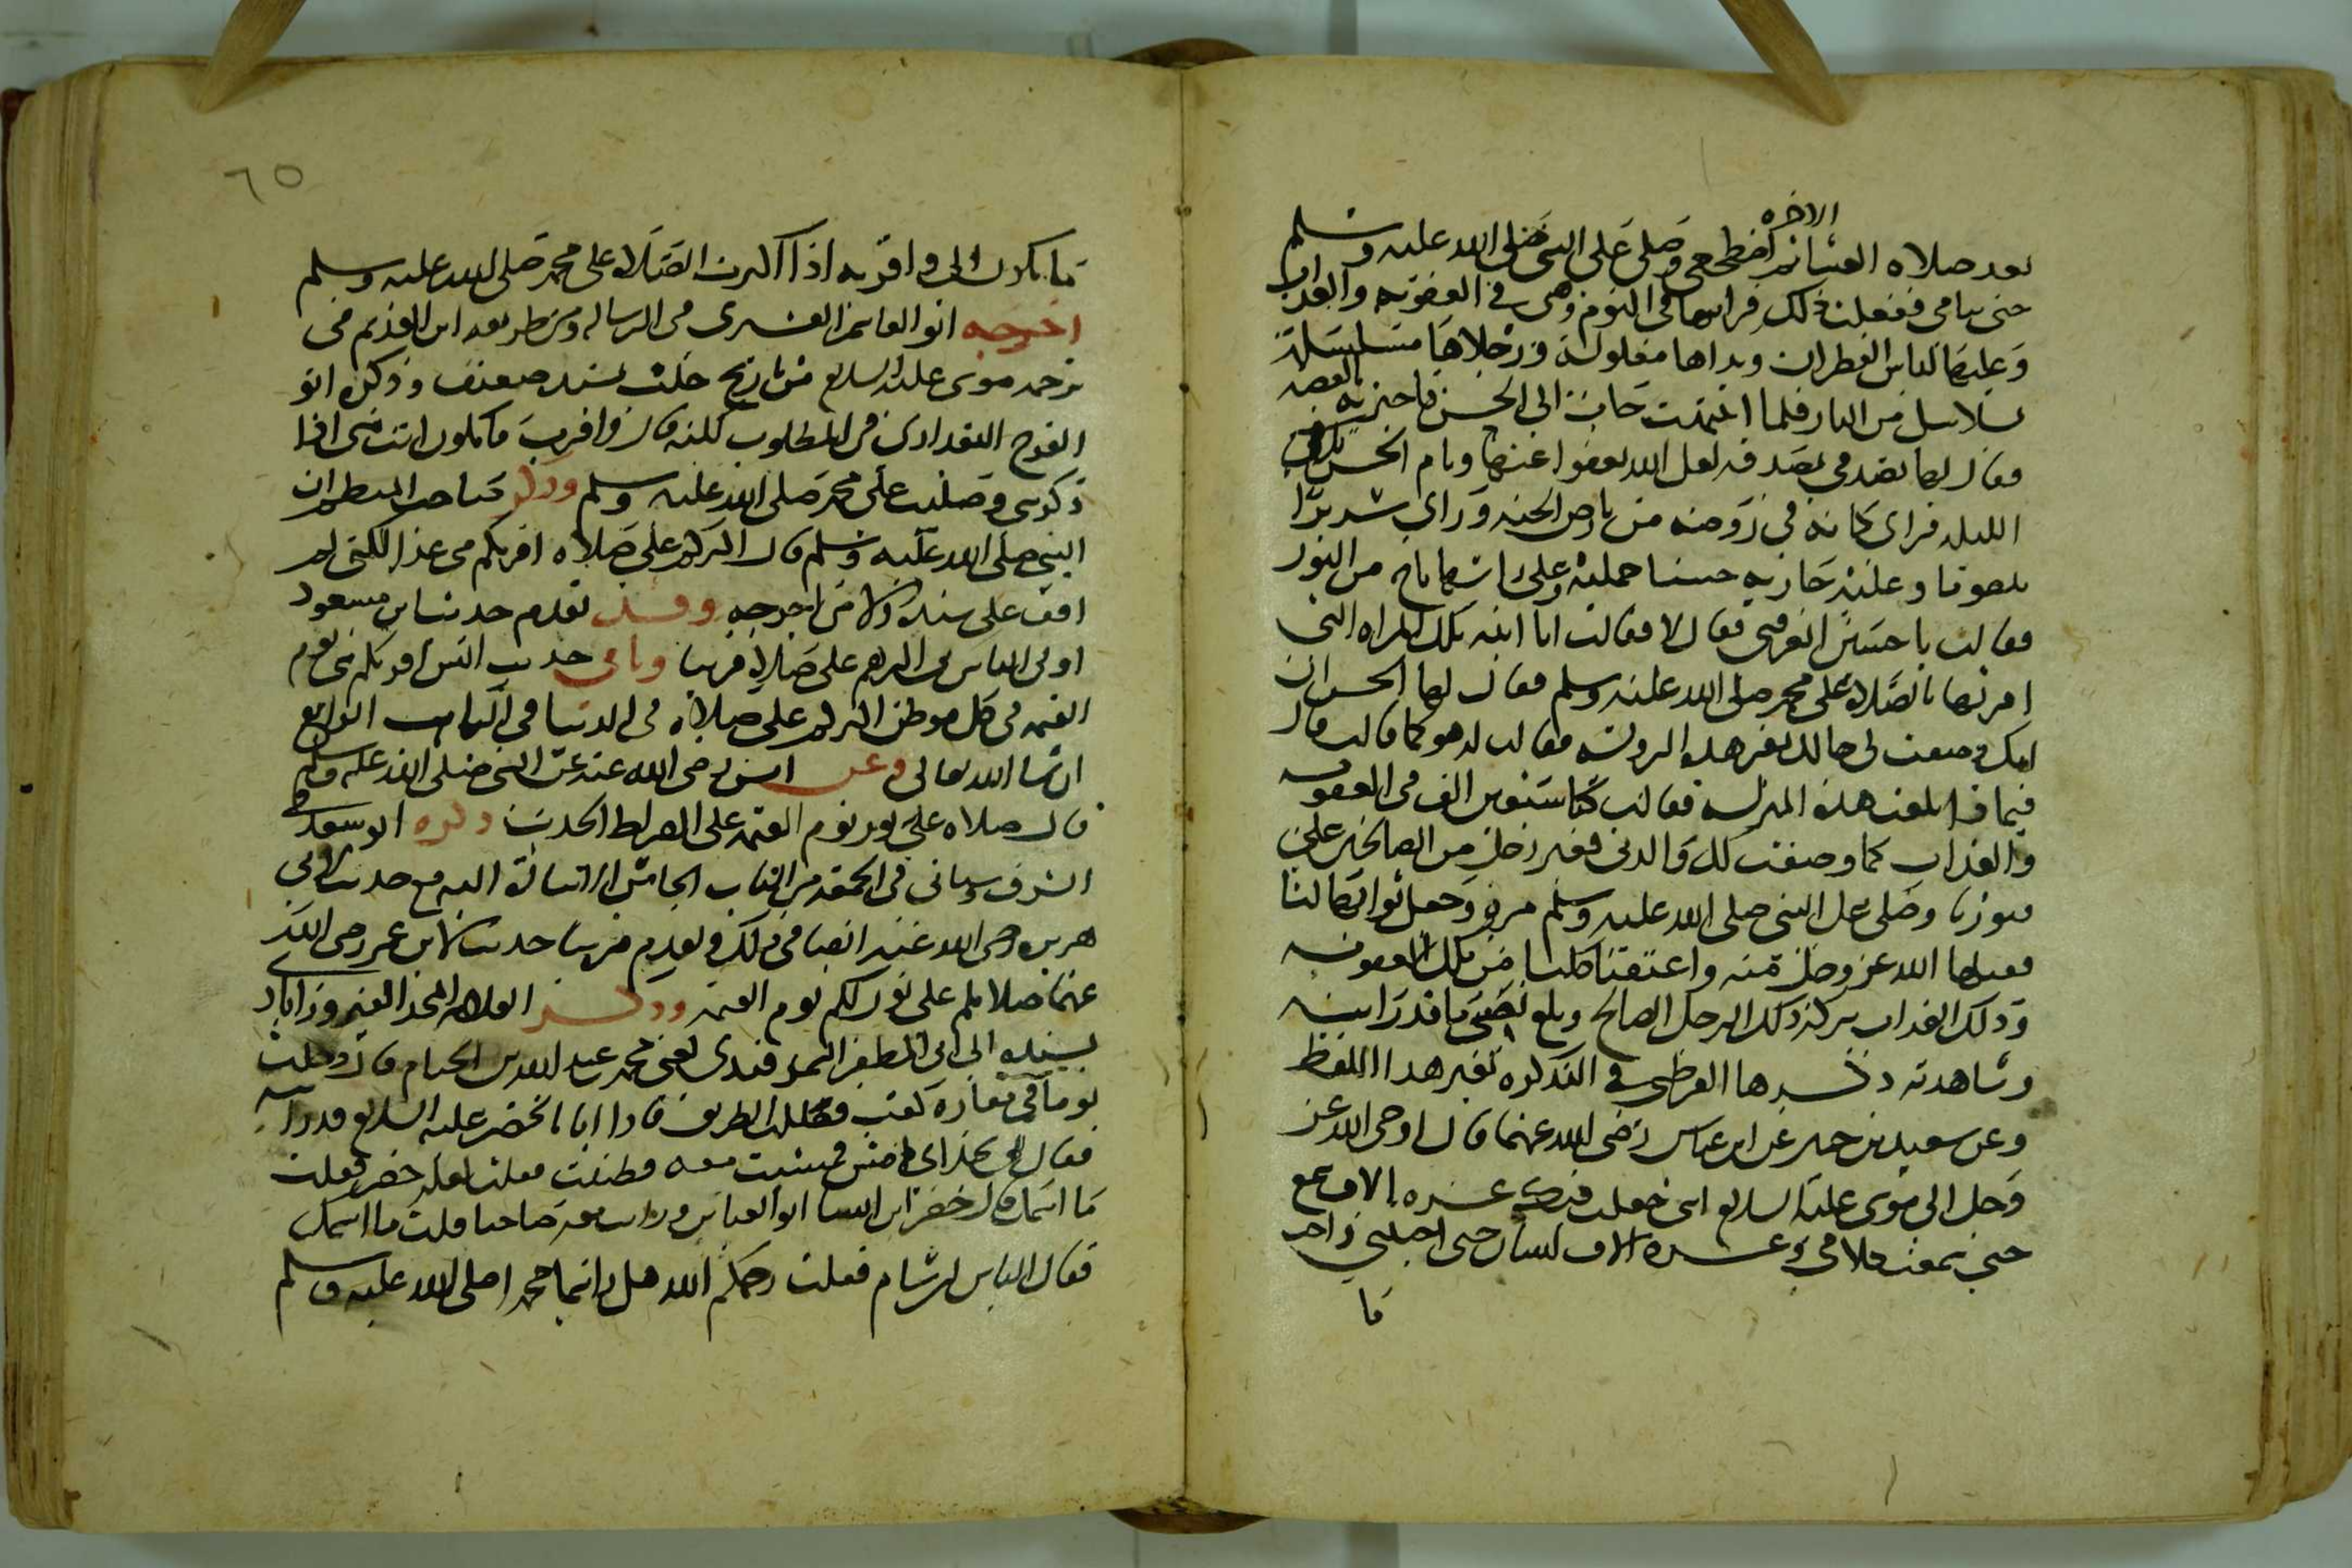 بعد صلاه العشا الاخره ثم اضطجعي وصلي على النبي صلى الله عليه وسلم
حتى تنامي ففعلت ذلك فراتها في النوم وهي في العقوبة والعذاب
وعليها لباس القطران ويداها مغلولة ورجلاها مسلسلة
بسلاسل من النار فلما انتبهت جات الى الحسن فاخبرته بالقصه
فقال لها تصدقي بصدقه لعل الله يعفوا عنها ونام الحسن تلك
الليله فراى كانه في روضه من رياض الجنه وراى سريرا
منصوبا وعليه جاريه حسنا جميله وعلى راسها تاج من النور
فقالت يا حسن اتعرفني فقال لا فقالت انا ابنه تلك المراه التي
امرتها بالصلاه على محمد صلى الله عليه وسلم فقال لها الحسن ان
امك وصفت لي حالك بغير هذه الرويه فقالت له هو كما قالت قال
فيما ذا بلغت هذه المنزله فقالت كنا سبعين الف في العقوبه
والعذاب كما وصفت لك والدتي فعبر رجل من الصالحين على
قبورنا وصلى على النبي صلى الله عليه وسلم مره وجعل ثوابها لنا
فقبلها الله عز وجل منه واعتقنا كلنا من تلك العقوبه
وذلك العذاب ببركة ذلك الرجل الصالح وبلغ نصيبي ما قد رايته
وشاهدته ذكرها القرطبي في التذكره بغير هذا اللفظ
وعن سعيد بن جبير عن ابن عباس رضي الله عنهما قال اوحى الله عز
وجل الى موسى عليه السلام اني جعلت فيك عشره الاف سمع
حتى سمعت كلامي وعشره الاف لسان حتى اجبتني واحب
ما
٦٥
ما تكون الي واقربه اذا اكثرت الصلاه على محمد صلى الله عليه وسلم
اخرجه ابو القاسم القشيري في الرساله ومن طريقه ابن العديم في
ترجمه موسى عليه السلام من تاريخ حلب بسند ضعيف وذكره ابو
الفرج البغدادي في المطلوب لكنه قال واقرب ما تكون انت مني اذا
ذكرتني وصليت على محمد صلى الله عليه وسلم وذكر صاحب الدر المنظم ان
النبي صلى الله عليه وسلم قال اكثركم علي صلاه اقربكم مني غدا لكني لم
اقف على سنده ولا من اخرجه وقد تقدم حديث ابن مسعود
اولى الناس بي اكثرهم علي صلاة قريبا وياتي حديث انس اقربكم مني يوم
القيمه في كل موطن اكثركم علي صلاه في الدنيا في الباب الرابع
ان شا الله تعالى وعن انس رضي الله عنه عن النبي صلى الله عليه وسلم
قال صلاه علي نور يوم القيمه على الصراط الحديث ذكره ابو سعد في
الشرف وسياتي في الجمعه من الباب الخامس ان شا الله مع حديث لابي
هريره رضي الله عنه ايضا في ذلك وتقدم قريبا حديث لابن عمر رضي الله
عنهما صلاتكم علي نور لكم يوم القيمه وذكر العلامه المجد الفيروزابادي
بسنده الى ابي المظفر السمرقندي يعني محمد عبد الله بن الخيام قال دخلت
يوما في مغارة كعب فضللت الطريق فاذا انا بالخضر عليه السلام قد رايته
فقال لي بجد اي امش فمشيت معه وظننت فقلت لعله خضر فقلت
ما اسمك قال خضر ابن ايشا ابو العباس ورايت معه صاحبا فقلت ما اسمك
فقال الياس بن شام فقلت رحمكم الله هل رايتما محمدا صلى الله عليه وسلم